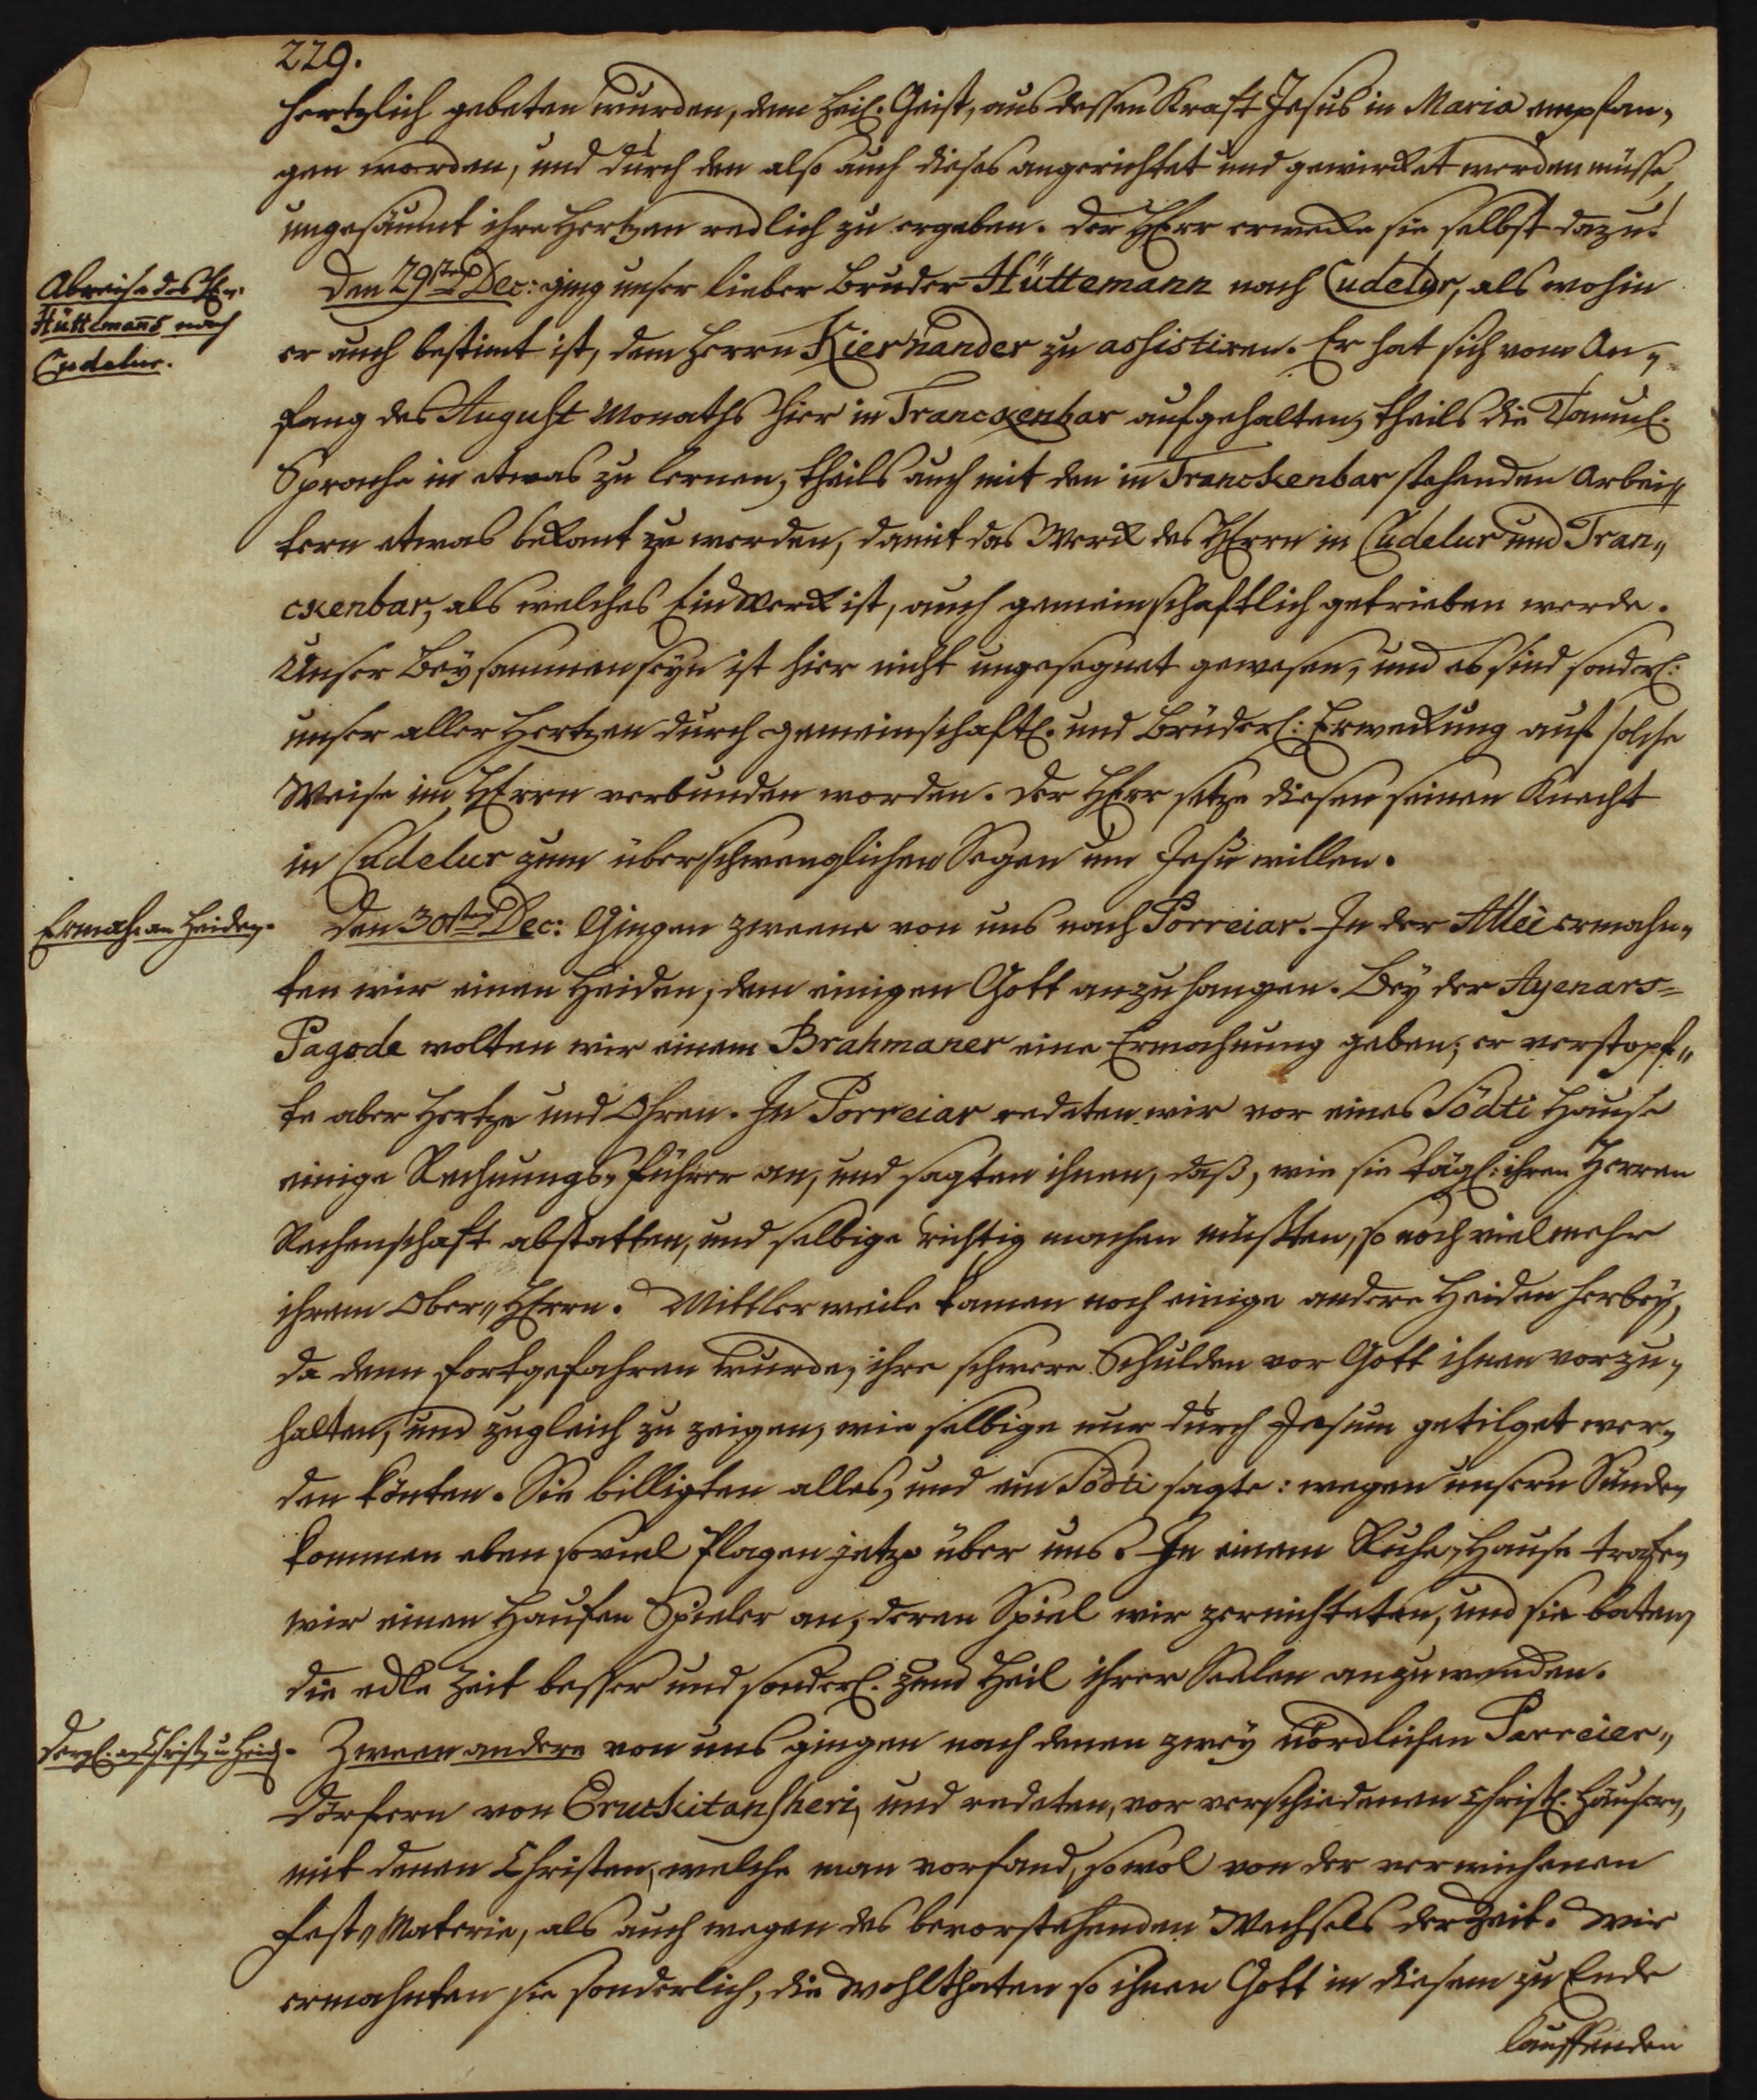 229.
hertzlich gebeten wurden, dem Heil. Geist, aus dessen Kraft Jesus in Maria empfan„
gen worden, und durch den also auch dieses angerichtet und gewircket werden müsse,
ungesäumt ihre Hertzen redlich zu ergeben. Der HErr erwecke sie selbst dazu!
Abreise des Hn.
Hüttemanns nach
Cudelur.
Den 29sten Dec: ging unser lieber Bruder Hüttemann nach Cudelur, als wohin
er auch bestimt ist, dem Herrn Kiernander zu assistiren. Er hat sich vom An„
fang des August Monaths hier in Tranckenbar aufgehalten, theils die Tamul.
Sprache in etwas zu lernen, theils auch mit den in Tranckenbar stehenden Arbei„
tern etwas bekant zu werden, damit das Werck des HErrn in Cudelur und Tran„
ckenbar, als welches Ein Werck ist, auch gemeinschaftlich getrieben werde.
Unser Beysammenseyn ist hier nicht ungesegnet gewesen, und es sind sonderl:
unser aller Hertzen durch gemeinschaftl. und Brüderl: Erweckung auf solche
Weise im HErrn verbunden worden. Der HErr setze diesen seinen Knecht
in Cudelur zum überschwenglichen Segen um Jesu willen.
Ermah. an Heiden.
Den 30sten Dec: Gingen zweene von uns nach Porreiar. In der Allei ermahn„
ten wir einen Heiden, dem einigen Gott anzuhangen. Bey der Ayenars=
Pagode wolten wir einem Brahmaner eine Ermahnung geben; er verstopf„
te aber Hertze und Ohren. In Porreiar redeten wir vor eines Södti Hause
einige Rechnungs„Führer an, und sagten ihnen, daß, wie sie tägl: ihren Herren
Rechenschaft abstatten, und selbige richtig machen müßten, so noch vielmehr
ihrem Ober„HErrn. Mittlerweile kamen noch einige andere Heiden herbey,
da denn fortgefahren wurde, ihre schwere Schulden vor Gott ihnen vorzu„
halten, und zugleich zu zeigen, wie selbige nur durch Jesum getilget wer„
den könten. Sie billigten alles, und ein Södti sagte: wegen unsern Sünden
kommen eben so viel Plagen jetzo über uns. In einem Ruhe„Hause trafen
wir einen Haufen Spieler an, deren Spiel wir zernichteten, und sie baten,
die edle Zeit besser und sonderl. zum Heil ihrer Seelen anzuwenden.
Dergl. an Christ. u. Heid.
Zween andere von uns gingen nach denen zwey nördlichen Parreier„
Dörfern von Eruckitansheri, und redeten, vor verschiedenen Christl. Häusern,
mit denen Christen, welche man vorfand, sowol von der verwichenen
Fest„Materie, als auch wegen des bevorstehenden Wechsels der Zeit. Wir
ermahnten sie sonderlich, die Wohlthaten so ihnen Gott in diesem zu Ende
lauffenden